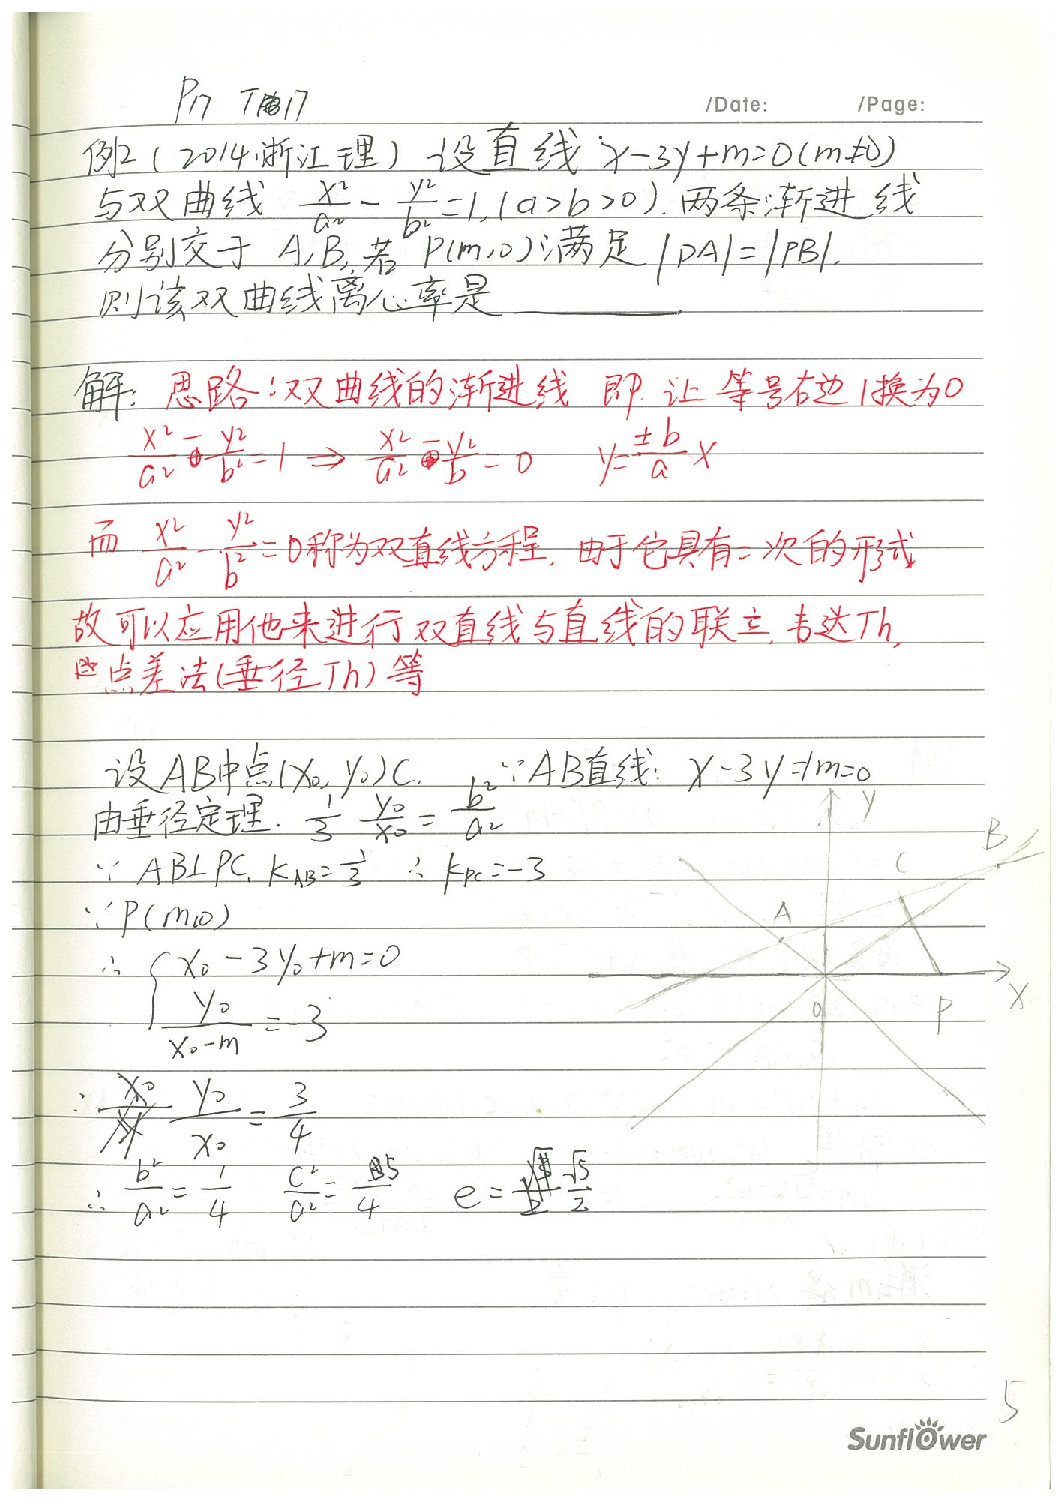 P17 T17
/Date: /Page:
例2(2014·浙江理)设直线 x-3y+m=0(m≠0)
与双曲线 x²/a² - y²/b² =1,(a>b>0).两条渐进线
分别交于 A,B,若 P(m,0)满足|PA|=|PB|.
则该双曲线离心率是______.
解: 思路:双曲线的渐进线 即 让 等号右边1换为0
x²/a² - y²/b² =1 ⇒ x²/a² - y²/b =0 y=±b/a x
而 x²/a² - y²/b² =0称为双直线方程.由于它具有二次的形式
故可以应用他来进行双直线与直线的联立,韦达Th,
点差法(垂径Th)等
设AB中点(x₀,y₀)C. ∵AB直线: x-3y+m=0
由垂径定理. 1/3 y₀/x₀ = b²/a²
∵AB⊥PC, k_AB=1/3 ∴k_PC=-3
∵P(m,0)
∴{x₀-3y₀+m=0
y₀/(x₀-m) = 3
∴ y₀/x₀ = 3/4
∴ b²/a² = 1/4 c²/a² = 5/4 e= √5/2
y
B
C
A
O
P
x
5
Sunflower